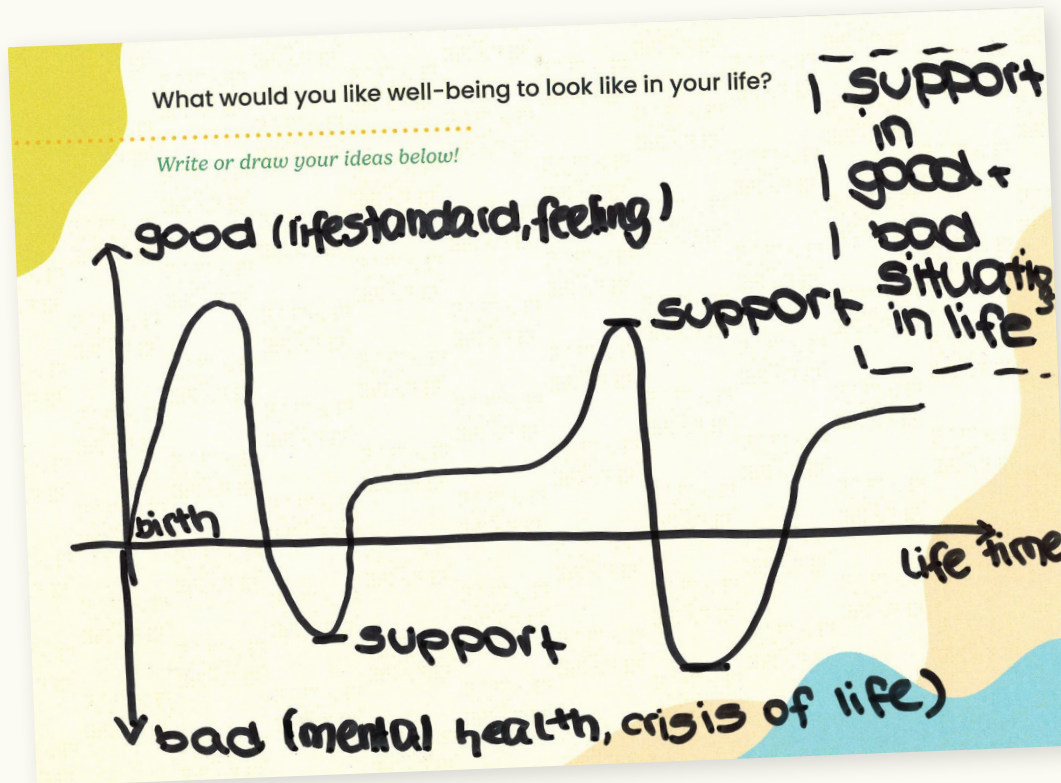 What would you like well-being to look like in your life?
Write or draw your ideas below!
support
in
good +
bad
situatigs
in life
good (lifestandard, feeling)
support
birth
life time
support
bad (mental health, crisis of life)